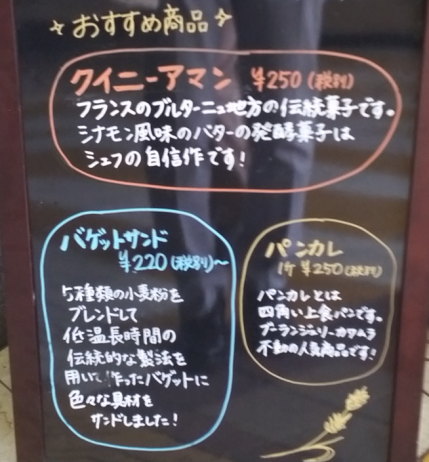 おすすめ商品
クイニーアマン ¥250(税別)
フランスのブルターニュ地方の伝統菓子です。
シナモン風味のバターの発酵菓子は
シェフの自信作です!
バゲットサンド
¥220(税別)~
5種類の小麦粉を
ブレンドして
低温長時間の
伝統的な製法を
用いて作ったバゲットに
色々な具材を
サンドしました!
パンカレ
1ヶ¥250(税別)
パンカレとは
四角い上食パンです。
ブーランジェリーカワムラ
不動の人気商品です!